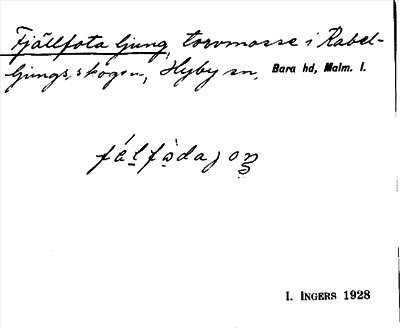 Fjällfota ljung, torvmosse i Rabel-
ljungs skogen, Hyby sn, Bara hd, Malm. l.
fálfòdajoŋ
I. INGERS 1928